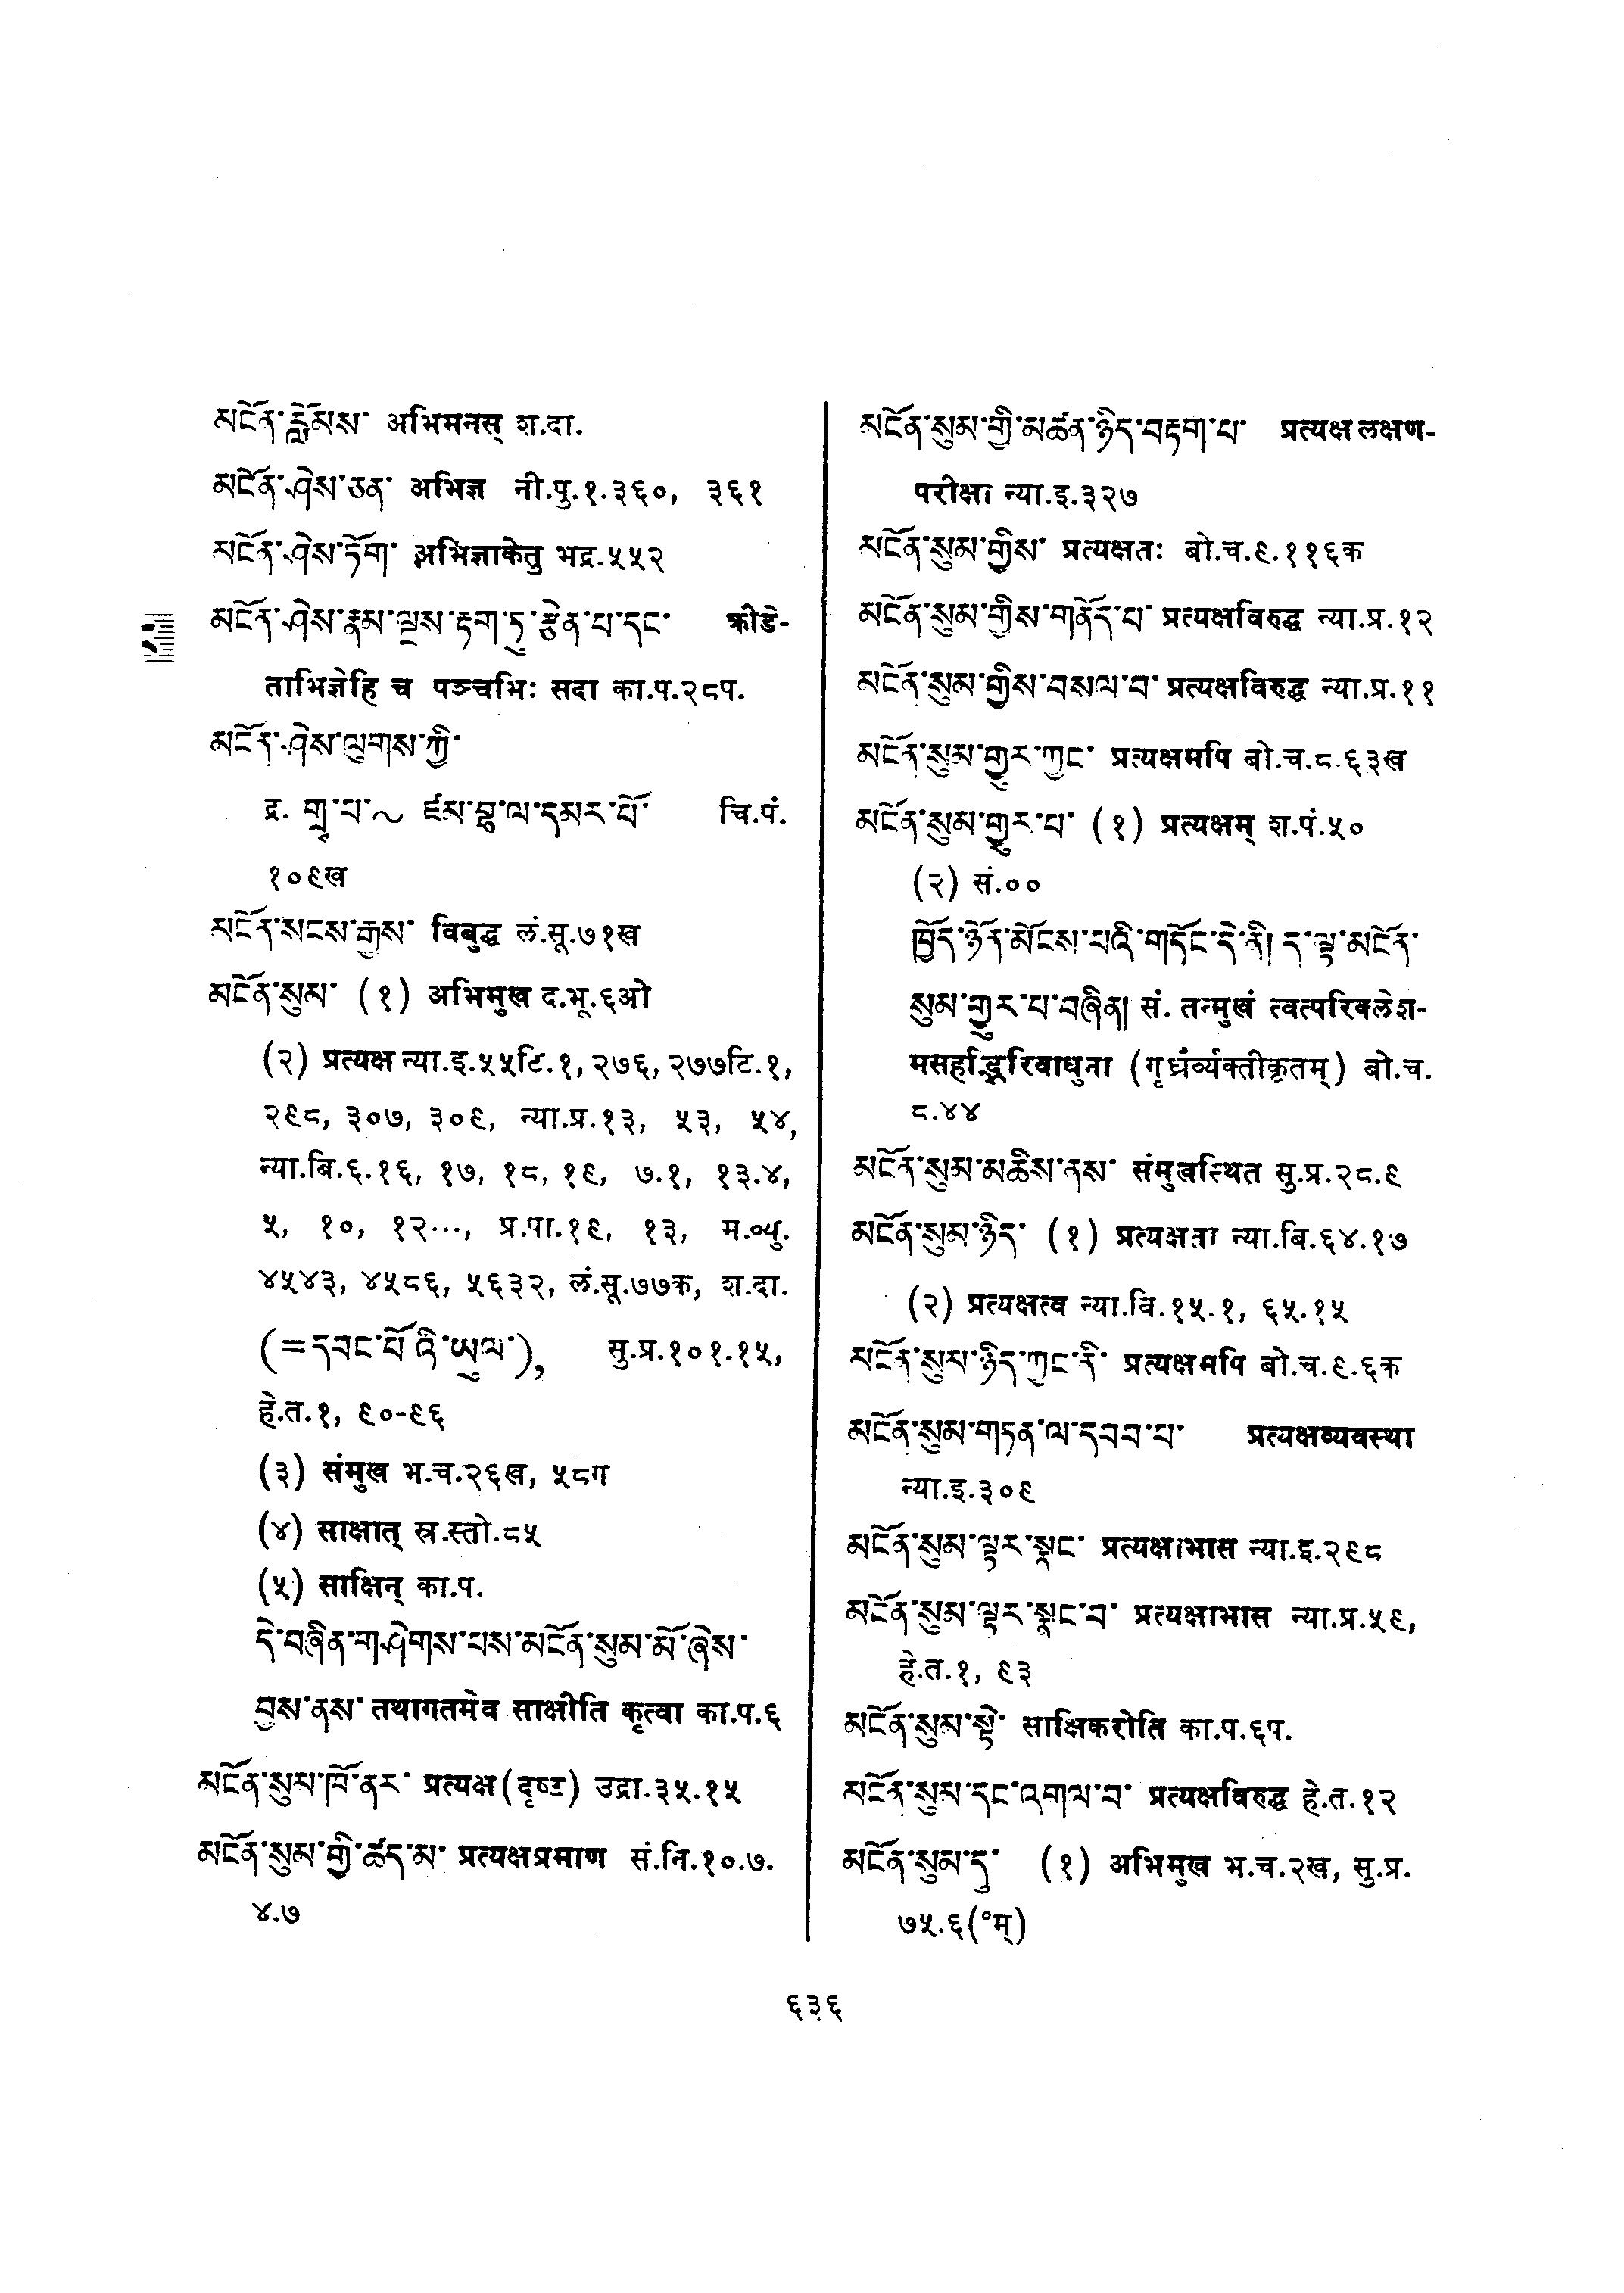 མངོན་རློམས་ अभिमनस् श.दा.
མངོན་ཤེས་ཅན་ अभिज्ञ नी.पु.१.३६०, ३६१
མངོན་ཤེས་ཏོག་ अभिज्ञाकेतु भद्र.५५२
མངོན་ཤེས་རྣམ་ལྔས་རྟག་ཏུ་རྩེན་པ་དང་ क्रीडे-
ताभिज्ञेहि च पञ्चभिः सदा का.प.२८प.
མངོན་ཤེས་ལུགས་ཀྱི་
द्र. གྲུ་པ་~ ཛམ་བྷ་ལ་དམར་པོ་ चि.पं.
१०९ख
མངོན་སངས་རྒྱས་ विबुद्ध लं.सू.७१ख
མངོན་སུམ་ (१) अभिमुख द.भू.६ओ
(२) प्रत्यक्ष न्या.इ.५५टि.१, २७६, २७७टि.१,
२९८, ३०७, ३०९, न्या.प्र.१३, ५३, ५४,
न्या.बि.६.१६, १७, १८, १९, ७.१, १३.४,
५, १०, १२..., प्र.पा.१९, १३, म.व्यु.
४५४३, ४५८६, ५६३२, लं.सू.७७क, श.दा.
(=དབང་པོ་འི་ཡུལ་), सु.प्र.१०१.१५,
हे.त.१, ९०-९६
(३) संमुख भ.च.२६ख, ५८ग
(४) साक्षात् स्र.स्तो.८५
(५) साक्षिन् का.प.
དེ་བཞིན་གཤེགས་པས་མངོན་སུམ་མོ་ཞེས་
བྱས་ནས་ तथागतमेव साक्षीति कृत्वा का.प.६
མངོན་སུམ་ཁོ་ནར་ प्रत्यक्ष(दृष्ट) उद्रा.३५.१५
མངོན་སུམ་གྱི་ཚད་མ་ प्रत्यक्षप्रमाण सं.नि.१०.७.
४.७
མངོན་སུམ་གྱི་མཚན་ཉིད་བརྟག་པ་ प्रत्यक्ष लक्षण-
परीक्षा न्या.इ.३२७
མངོན་སུམ་གྱིས་ प्रत्यक्षतः बो.च.९.११६क
མངོན་སུམ་གྱིས་གནོད་པ་ प्रत्यक्षविरुद्ध न्या.प्र.१२
མངོན་སུམ་གྱིས་བསལ་བ་ प्रत्यक्षविरुद्ध न्या.प्र.११
མངོན་སུམ་གྱུར་ཀྱང་ प्रत्यक्षमपि बो.च.८.६३ख
མངོན་སུམ་གྱུར་པ་ (१) प्रत्यक्षम् श.पं.५०
(२) सं.००
ཁྱོད་ཉོན་མོངས་པའི་གདོང་དེ་ནི། ད་ལྟ་མངོན་
སུམ་གྱུར་པ་བཞིན། सं. तन्मुखं त्वत्परिक्लेश-
मसहद्भिरिवाधुना (गृध्रैर्व्यक्तीकृतम्) बो.च.
८.४४
མངོན་སུམ་མཆིས་ནས་ संमुखस्थित सु.प्र.२८.९
མངོན་སུམ་ཉིད་ (१) प्रत्यक्षता न्या.बि.६४.१७
(२) प्रत्यक्षत्व न्या.वि.१५.१, ६५.१५
མངོན་སུམ་ཉིད་ཀྱང་ནི་ प्रत्यक्षमपि बो.च.९.६क
མངོན་སུམ་གཏན་ལ་དབབ་པ་ प्रत्यक्षव्यवस्था
न्या.इ.३०९
མངོན་སུམ་ལྟར་སྣང་ प्रत्यक्षाभास न्या.इ.२९८
མངོན་སུམ་ལྟར་སྣང་བ་ प्रत्यक्षाभास न्या.प्र.५९,
हे.त.१, ९३
མངོན་སུམ་སྟེ་ साक्षिकरोति का.प.६प.
མངོན་སུམ་དང་འགལ་བ་ प्रत्यक्षविरुद्ध हे.त.१२
མངོན་སུམ་དུ་ (१) अभिमुख भ.च.२ख, सु.प्र.
७५.६(°म्)
६३६